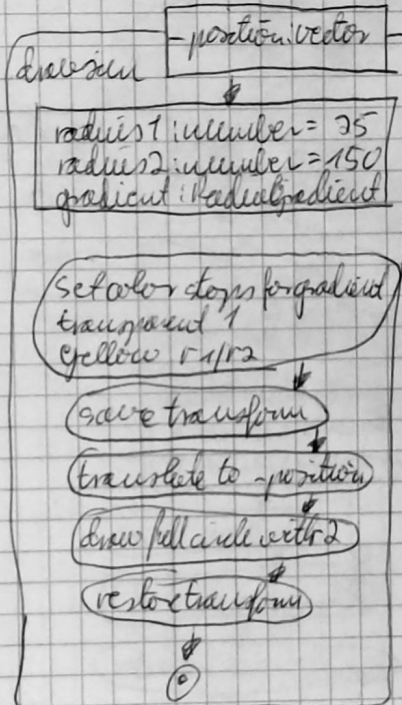 _position: vector
drawsun
radius1: number = 25
radius2: number = 150
gradient: RadialGradient
set color stops for gradient
transparent 1
yellow r1/r2
save transform
translate to _position
draw full circle with r2
restore transform